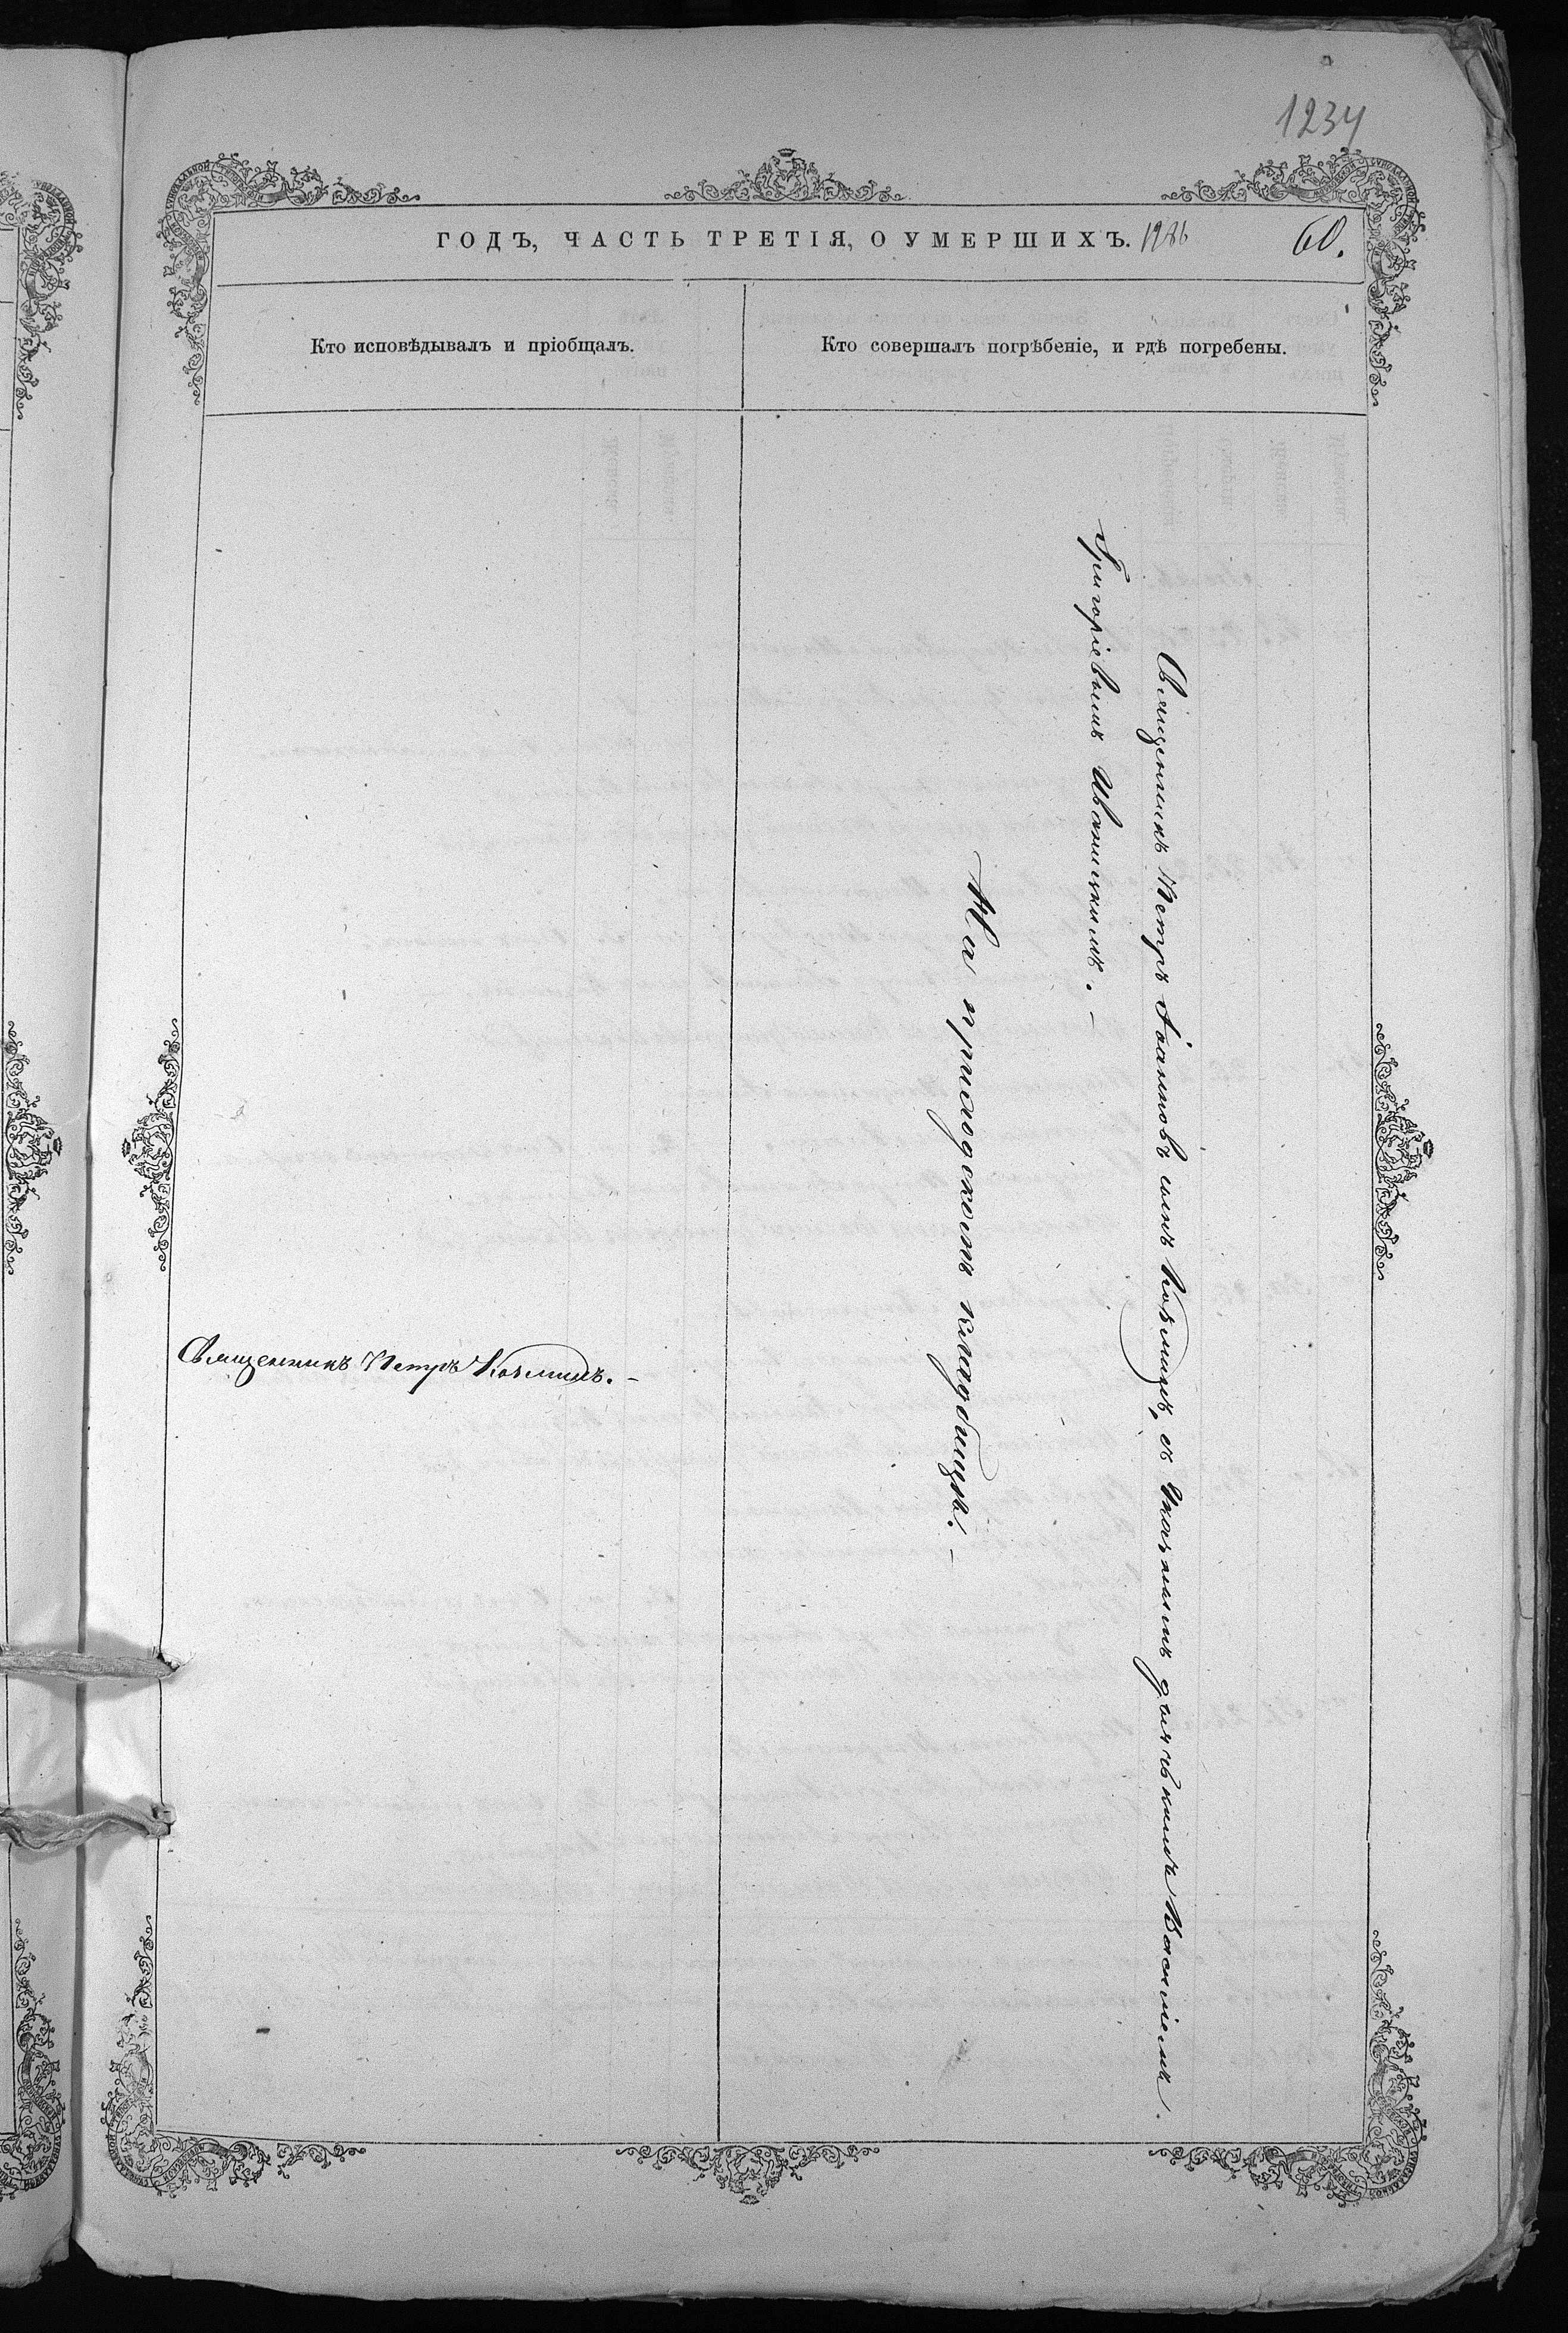 1234
ГОДЪ, ЧАСТЬ ТРЕТІЯ, О УМЕРШИХЪ.
60.
Кто исповѣдывалъ и пріобщалъ.
Кто совершалъ погрѣбеніе, и гдѣ погребены.
Священникъ Петръ Козминъ.
Священникъ Петръ Іоанновъ сынъ Козминъ, съ Указнымъ дьячкомъ Василіемъ
Григоріевымъ Иваницкимъ.
На приходскомъ кладбищѣ.